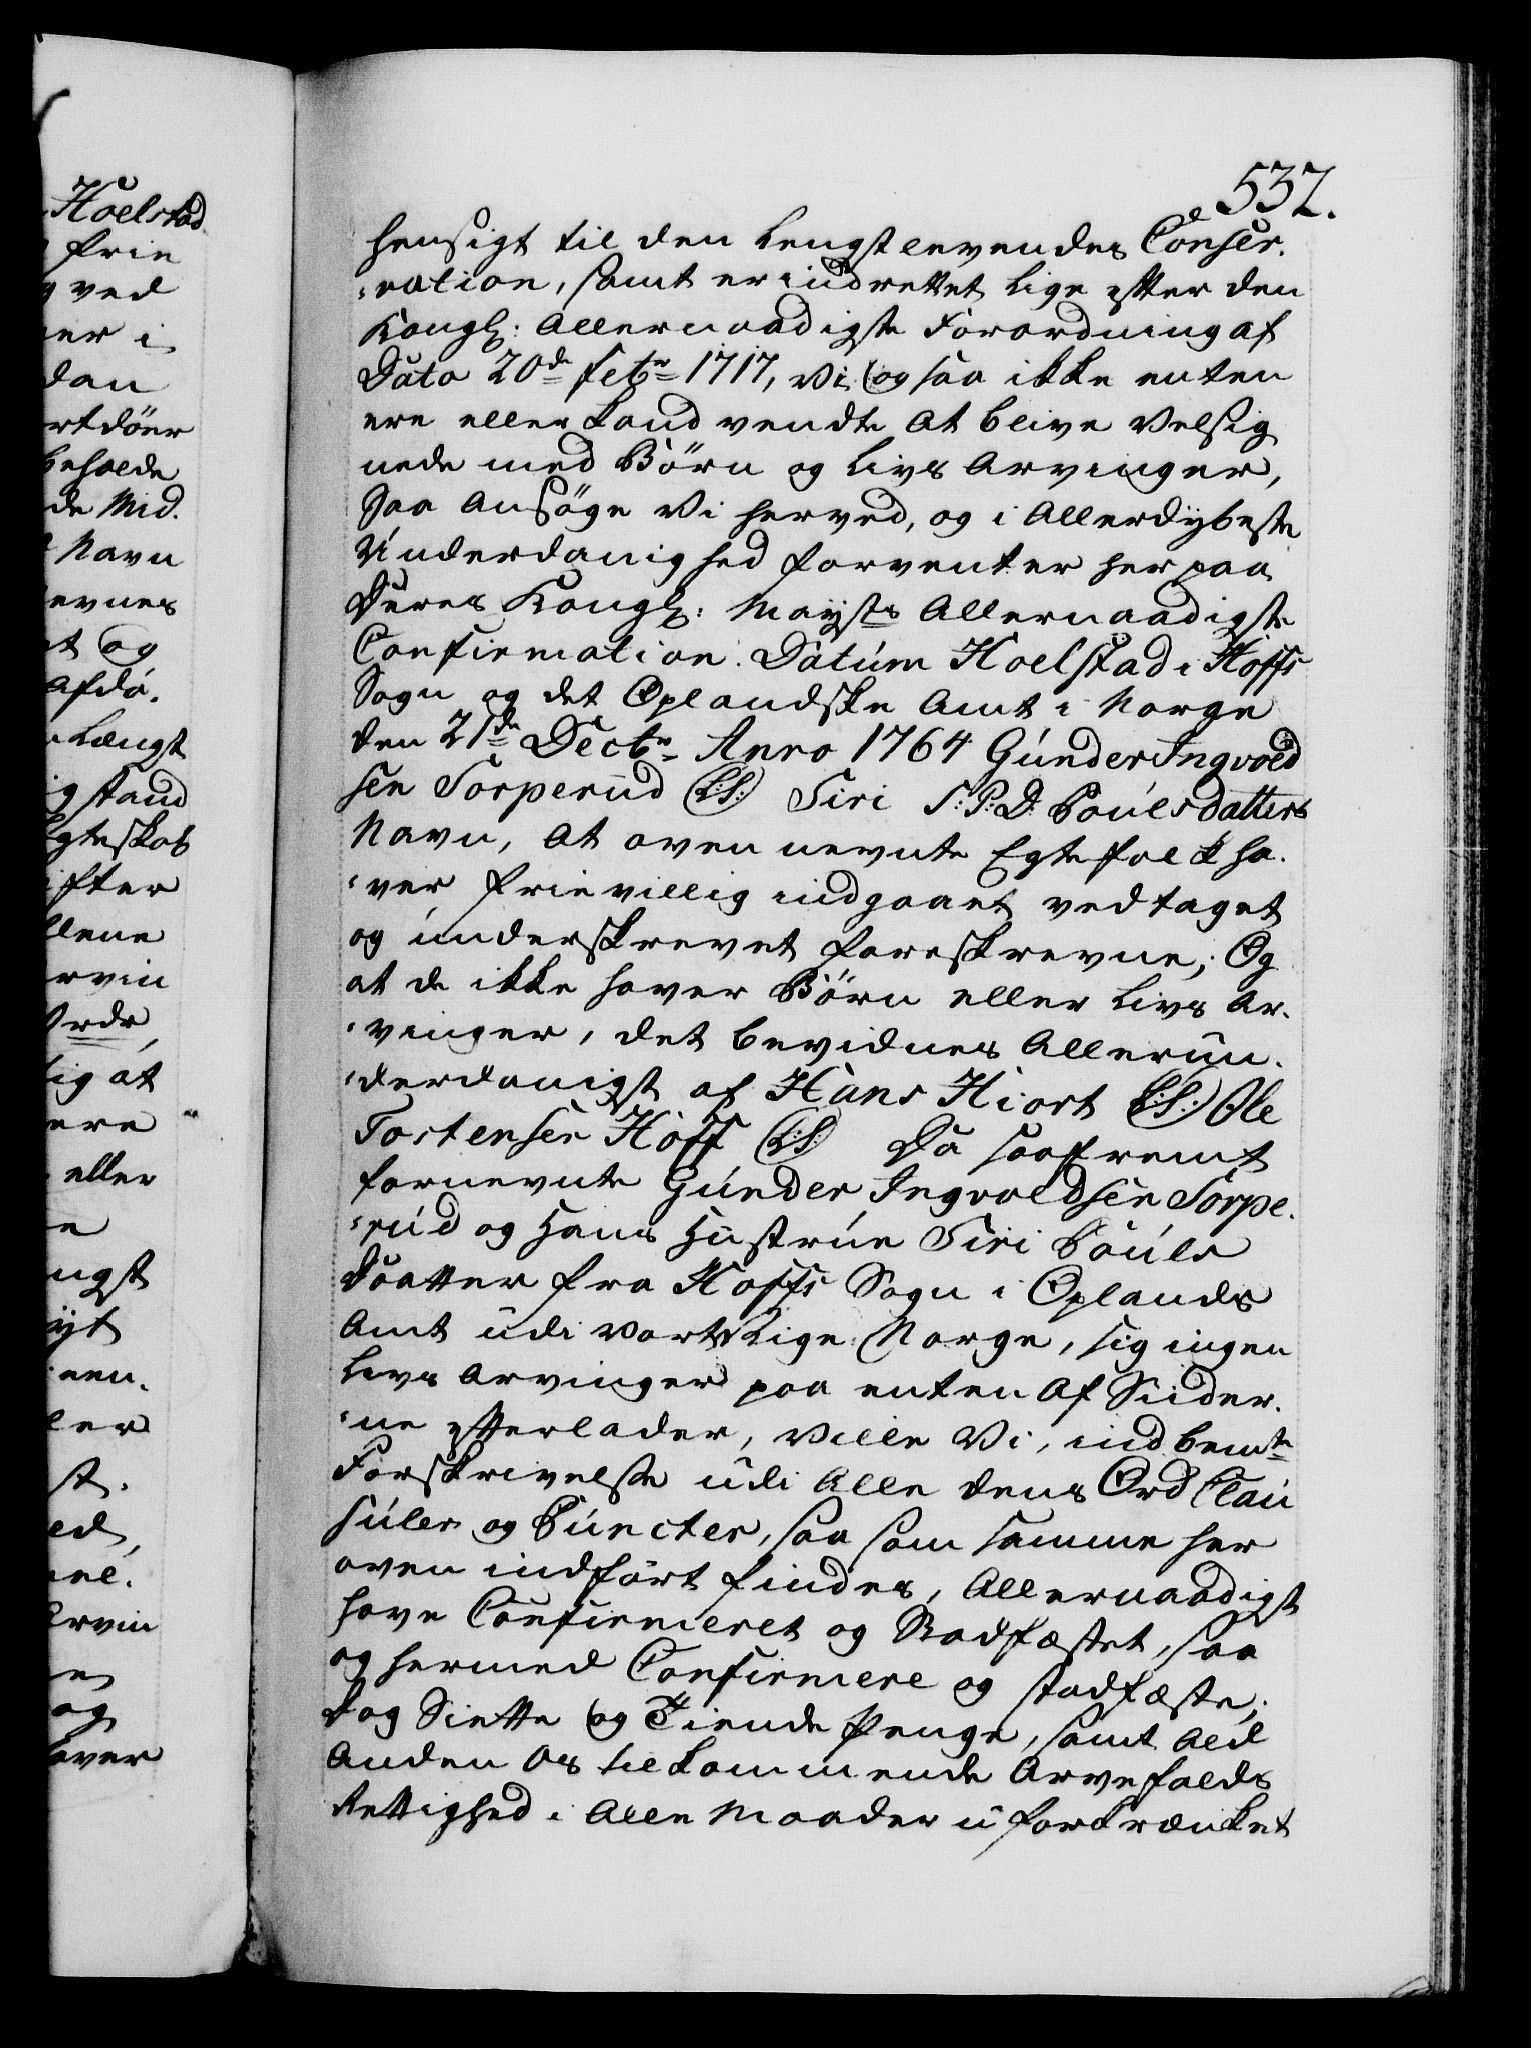 Hoelstad
frie
ved
er i
dan
rtdöer
beholde
de Mid.
Navn
evnes
et og
Afdö.
Længst
ig stand
Egteskab
ifter
llene
rvin
Ordr
lig at
ere
eller
e
ngst
een.
ler
st.
ed,
Arvin
og
over
532.
hensigt til den Lengstlevendes Conser¬
:vation, samt er indrettet lige efter den
Kongl: Allernaadigste Forordning af
Dato 20de Febr 1717, Vi og saa ikke enten
ere eller kand vendte at blive Velsig
nede med Börn og Livs Arvinger,
Saa Ansöge Vi herved, og i Allerdybeste
Underdanighed forventer her paa
Deres Kongl: Maysts Allernaadigste
Confirmation. Datum Hoelstad i Hoffs
Sogn og det Oplandske Amt i Norge
den 21de Decbr Anno 1764 Gunder Ingvold
sen Torperud (L:S:) Siri S:P:D: Poulsdatters
Navn, At oven nevnte Egtefolk ha¬
:ver frievillig indgaaet vedtaget
og underskrevet foreskrevne; Og
at de ikke haver Börn eller Livs Ar¬
:vinger, det bevidnes Allerun¬
:derdanigst af Hans Hiort (L:S:) Ole
Tostensen Hoff (L:S:) Da saafremt
fornevnte Gunder Ingvoldsen Torpe¬
:rud og Hans Hustrue Siri Pouls
Daatter fra Hoffs Sogn i Oplands
Amt udi vort Rige Norge, sig ingen
Livs Arvinger paa enten Af Siider¬
:ne efterlader, Ville Vi, indbemte
Forskrivelse udi Alle dens Ord Clau
suler og Puncter, saa som samme her
oven indfört findes, Allernaadigst
have Confirmeret og Stadfæstet, saa
og hermed Confirmere og stadfæste;
Dog Siette og Tiende Penge, samt Ald
Anden Os tilkommende Arvefalds
Rettighed i Alle Maader uforkrænket